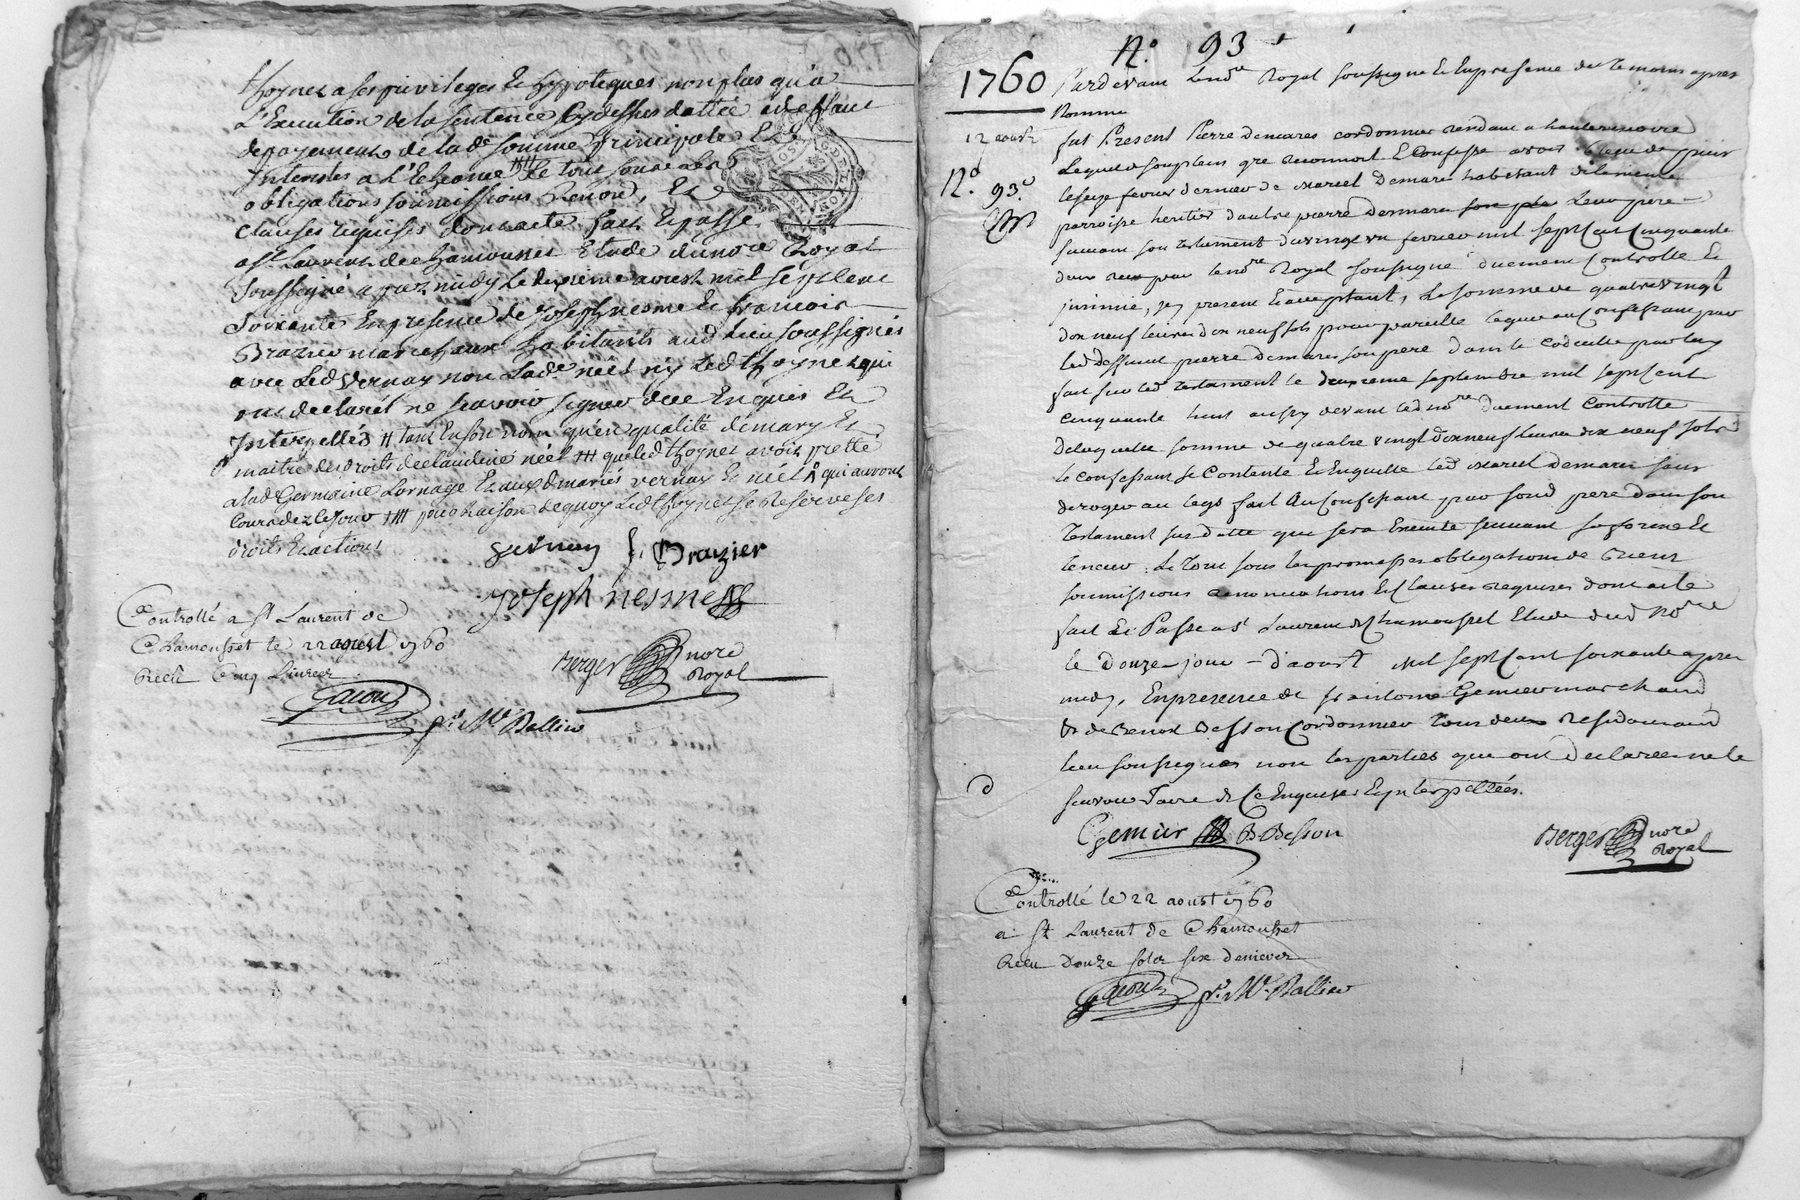 thoynet a ses privileges et hypoteques non plus qu'a
L'Execution de la sentence cy dessus dattée a deffaut
de payement de la de somme principale Et
Interests a L'Echeance le tout sous
obligations soumissions Renon, Et
clauses requises dont acte fait Et passé
a st Laurent de chamousset Etude du nore Royal
soussigné apres midy le douxieme aoust mil sept cent
soixante En presence de Joseph nesme et françois
Brazier marechaux habitants aud lieu soussignés
avec Led Vernay non Lade néel ny Led thoynet qui
ont declaré ne scavoir signer de ce Enquis Et
Interpellés # tant En son nom qu'en qualité de mary Et
maitre des droits de claudine néel ## que led thoynet avoit pretté
a lad Germaine Lornage Et aux d mariés vernay Et néel qui auront
cours dez Ce jour ### pour raison de quoy Led thoynet se Reserve ses
droits Et actions
vernay f. Brazier
Joseph nesme
Controllé a St Laurent de
Chamousset le 22 aoust 1760
Recu Cinq Livres
Berger nore
Royal
pr Mr Ballin
No 93
1760
Pardevant Le nore Royal soussigné Et En presence des temoins apres
Nommé
12 aoust
fut Present Pierre demares cordonnier
No. 93e
Lequel de son plein gré reconnoit Et Confesse avoir
le seize fevrier dernier de Marcel Demare habitant
parroisse heritier d'autre pierre demare Leur pere
suivant son testament du vingt un fevrier mil sept Cent Cinquante
deux recu par Le nore Royal soussigné duement Controllé Et
insinué, icy present Et acceptant, La somme de quatre vingt
dix neuf livres dix neuf sols pour pareille leguée au Confessant par
led deffunt pierre demares son pere dans le codicille par luy
fait sur led testament le deuxieme septembre mil sept Cent
cinquante huit aussy devant led nore duement Controllé
de laquelle somme de quatre vingt dix neuf livres dix neuf sols
le Confessant se Contente Et En quitte led Marcel demare sans
deroger au legs fait au Confessant par sond pere dans son
testament sus datté que sera Execute suivant sa forme Et
teneur. Le tout sous les promesses obligations de biens
soumissions renonciations Et Clauses requises dont acte
fait Et Passé a st Laurent de Chamousset Etude dud Nore
le douze jour d'aoust Mil sept Cent soixante apres
midy, En presence de sr antoine Gemier marchand
Et de Benoit Besson Cordonnier tous deux residans aud
lieu soussignés non les parties que ont declarée ne le
scavoir faire de Ce Enquises Et interpellées.
Gemier B Besson
Berger nore
Royal
Controllé le 22 aoust 1760
a St Laurent de Chamousset
Recu Douze sols six deniers
pr Mr Ballin